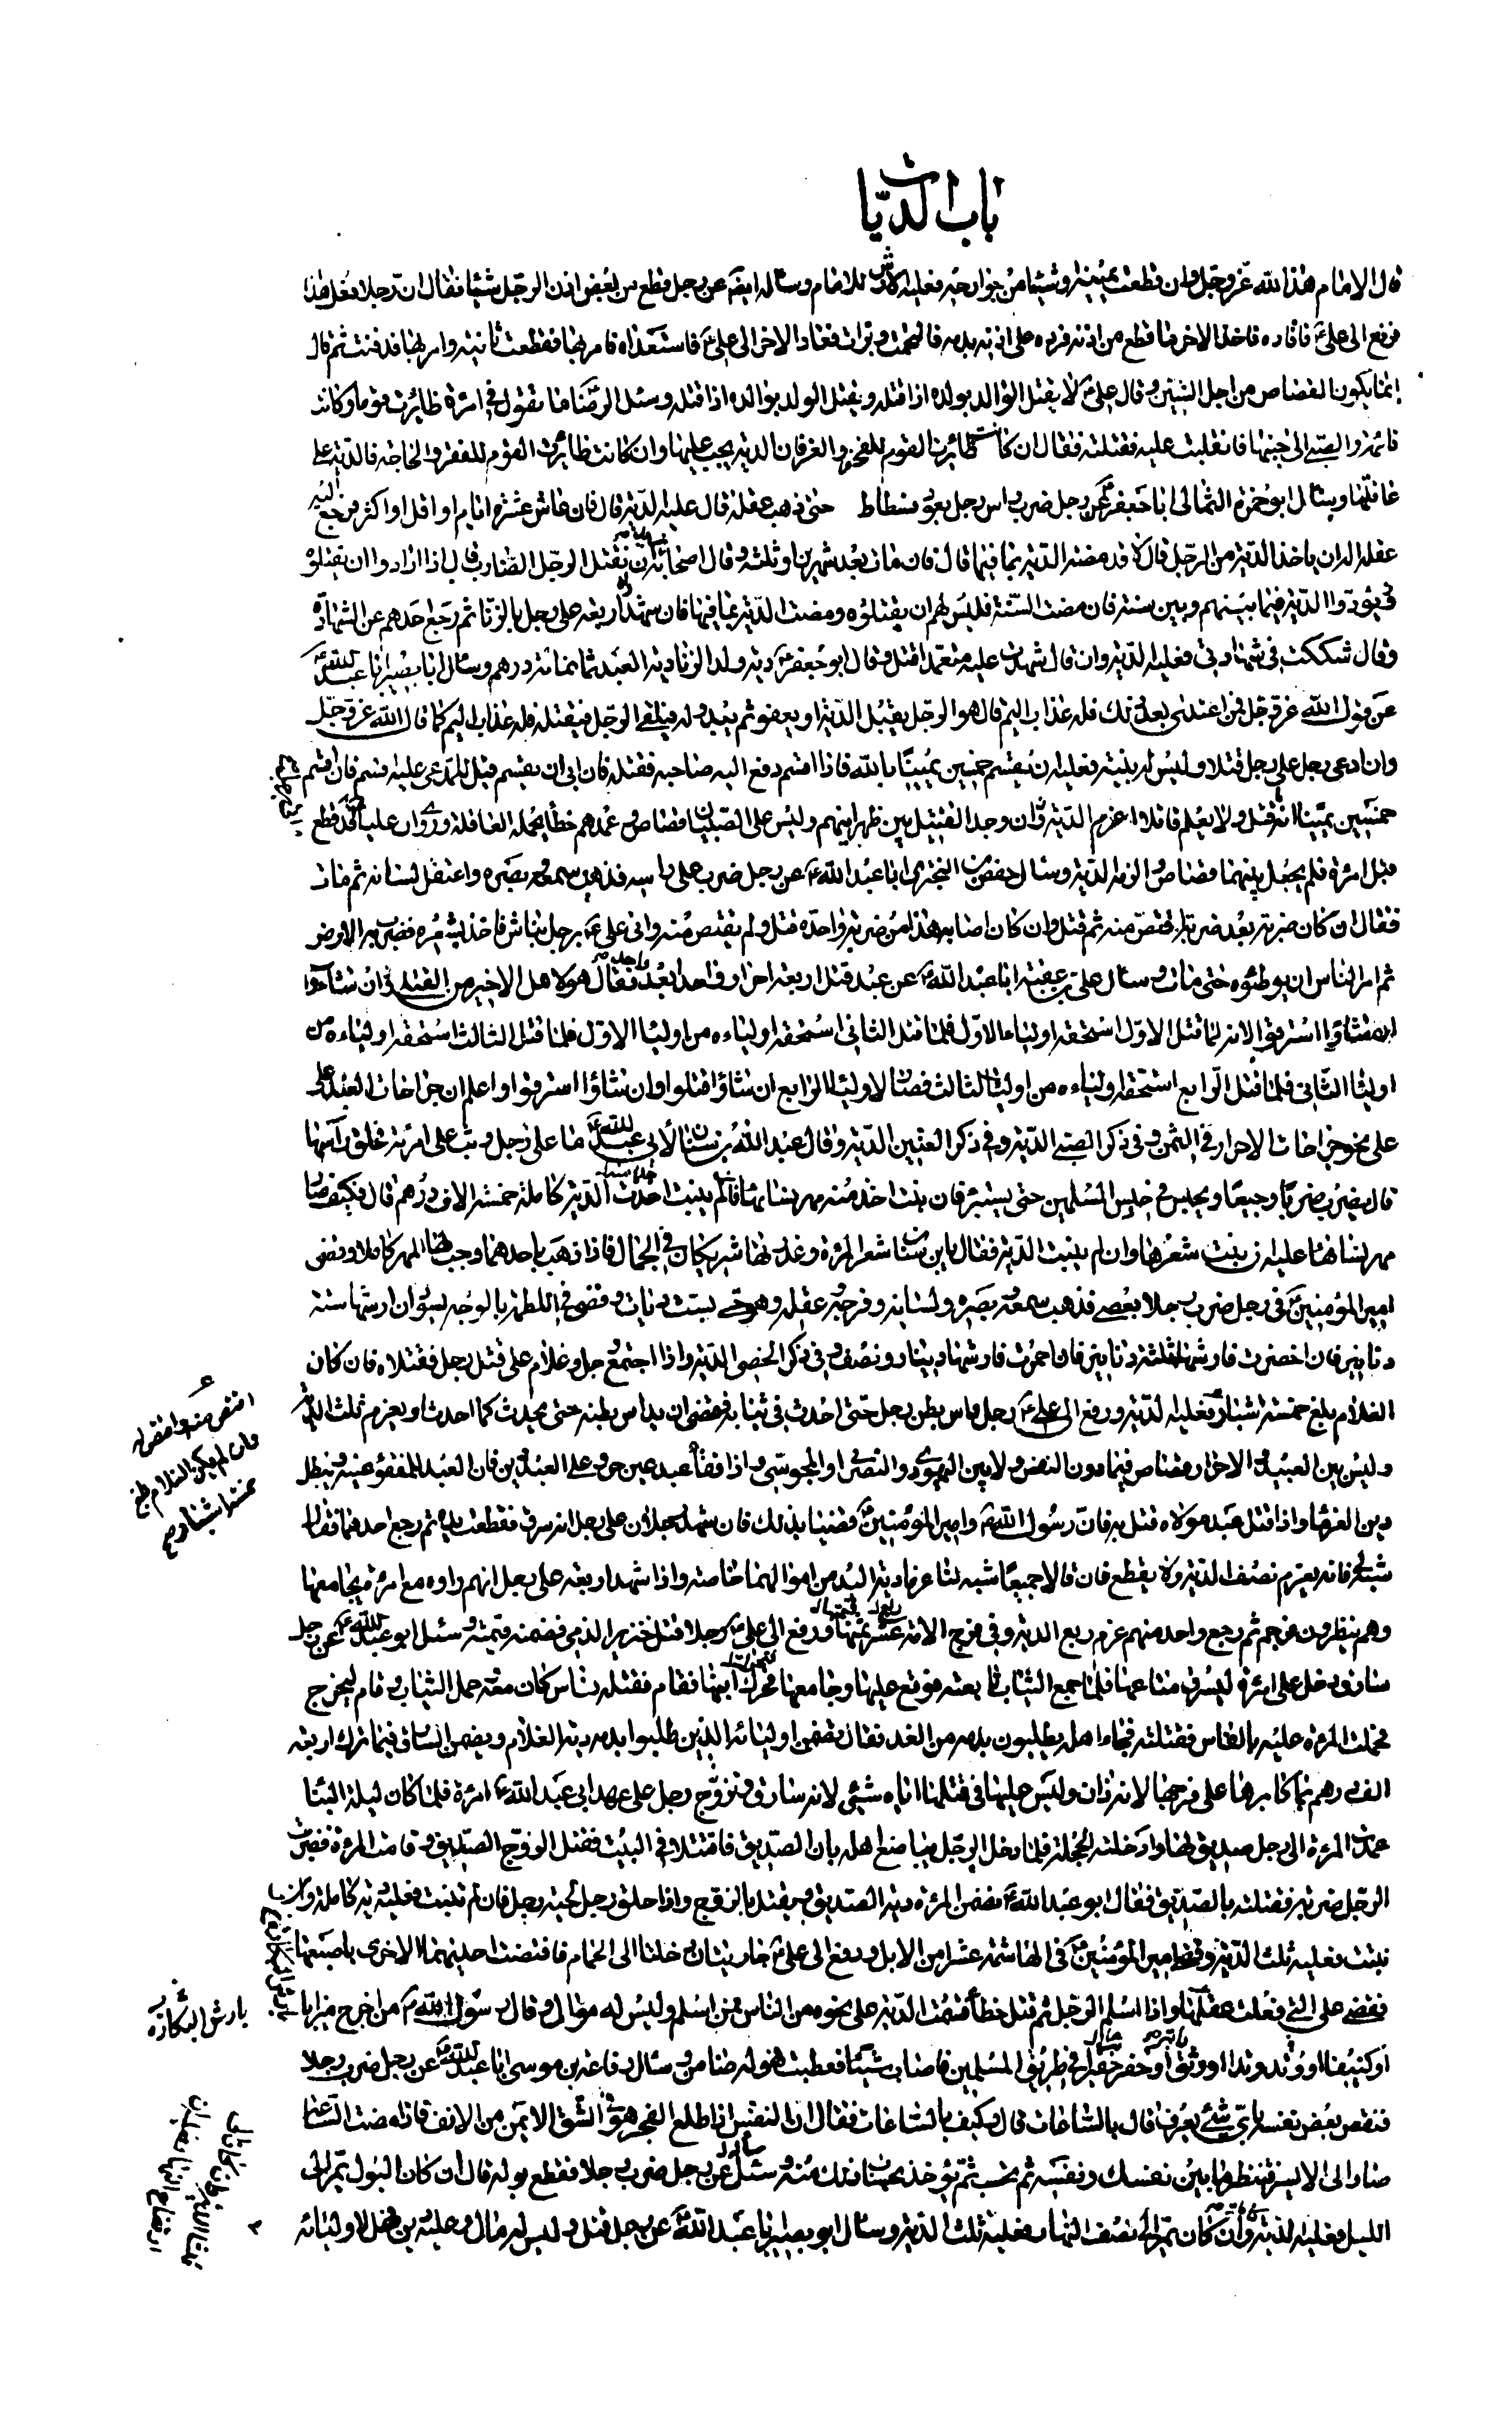 باب الديات
قال الامام هذا لله عز وجل وان قطعت يمينه او شيئا من جوارحه فعليه الارش للامام وساله ايضا عن رجل قطع من بعض اذن الرجل شيئا فقال ان رجلا فعل هذا
فرفع الى علي ع فاقاده فاخذ الاخر ما قطع من اذنه فرده على اذنه بدمه فالتحمت وبرات فعاد الاخر الى علي ع فاستعداه فامر بها فقطعت ثانية وامر بها فدفنت ثم قال
انما يكون القصاص من اجل الشين وقال علي ع لا يقتل الوالد بولده اذا قتله ويقتل الولد بوالده اذا قتله وسئل الرضا ما تقول في امرءة ظائرت قوما وكانت
نائمة والصبي الى جنبها فانقلبت عليه فقتلته فقال ان كانت ظائرت القوم للفخر والعز فان الدية يجب عليها وان كانت ظائرت القوم للفقر والحاجة فالدية على
عاقلتها وسئال ابو حمزة الثمالى ابا جعفر ع عن رجل ضرب راس رجل بعود فسطاط حتى ذهب عقله قال عليه الدية قال فان عاش عشرة ايام او اقل او اكثر فرجع اليه
عقله اله ان ياخذ الدية من الرجل قال لا قد مضت الدية بما فيها قال فان مات بعد شهرين او ثلثة وقال اصحابه نريد ان نقتل الرجل الضارب قال اذا ارادوا ان يقتلوه
يؤدوا الدية فيما بينهم وبين سنة فان مضت السنة فليس لهم ان يقتلوه ومضت الدية بما فيها فان شهد اربعة على رجل بالزنا ثم رجع احدهم عن الشهادة
وقال شككت في شهادتي فعليه الدية وان قال شهدت عليه متعمدا قتل وقال ابو جعفر ع دية ولد الزنا دية العبد ثمانمائة درهم وسئال ابا بصير ابا عبد الله ع
عن قول الله عز وجل فمن اعتدى بعد ذلك فله عذاب اليم قال هو الرجل يقبل الدية او يعفو ثم يبدو له فيلقى الرجل فيقتله فله عذاب اليم كما قال الله عز وجل
وان ادعى رجل على رجل قتلا وليس له بينة فعليه ان يقسم خمسين يمينا بالله فاذا اقسم دفع اليه صاحبه فقتله فان ابى ان يقسم قيل للمدعى عليه اقسم فان اقسم
خمسين يمينا انه ما قتل ولا يعلم قاتلا اغرم الدية وان وجد القتيل بين ظهرانيهم وليس على الصبيان قصاص وعمدهم خطا يحمله العاقلة وروى ان عليا ع قد قطع
قبل امرءة فلم يجعل بينهما قصاص والزمه الدية وسئال حفص بن البختري ابا عبد الله ع عن رجل ضرب على راسه فذهب سمعه وبصره واعتقل لسانه ثم مات
فقال ان كان ضربه ضربة بعد ضربة اقتص منه ثم قتل وان كان اصابه هذا من ضربة واحدة قتل ولم يقتص منه واتى علي ع برجل نباش فاخذ بشعره فضرب به الارض
ثم امر الناس ان يوطئوه حتى مات وسئال علي بن عقبة ابا عبد الله ع عن عبد قتل اربعة احرار واحدا بعد واحد فقال هو لاهل الاخير من القتلى ان شاؤا
قتلوه وان شاؤا استرقوه لانه لما قتل الاول استحقه اولياء الاول فلما قتل الثاني استحقه اولياءه من اولياء الاول فلما قتل الثالث استحقه اولياءه من
اولياء الثاني فلما قتل الرابع استحقه اولياءه من اولياء الثالث فصار لاولياء الرابع ان شاؤا قتلوا وان شاؤا استرقوا واعلم ان جراحات العبد
على نحو جراحات الاحرار في الثمن وفي ذكر الصبي الدية وفي ذكر العنين الدية وقال عبد الله بن سنان لابي عبد الله ع ما على رجل وثب على امرءة فحلق راسها
قال يضرب ضربا وجيعا ويحبس في حبس المسلمين حتى يستبرء فان نبت اخذ منه مهر نسائها فان لم ينبت اخذت الدية كاملة خمسة الاف درهم قال فكيف صار
مهر نسائها عليه ان نبت شعرها وان لم ينبت الدية فقال يابن سنان شعر المرءة وعذرتها شريكان في الجمال فاذا ذهب باحدهما وجب لها المهر كاملا وقضى
امير المؤمنين ع في رجل ضرب رجلا بعصى فذهب سمعه وبصره ولسانه وفرجه وعقله وهو حي بست ديات وقضى في اللطمة بالوجه تسود ان ارشها ستة
دنانير فان اخضرت فارشها ثلثة دنانير فان احمرت فارشها دينار ونصف وفي ذكر الخصي الدية واذا اجتمع رجل وغلام على قتل رجل فقتلاه فان كان
الغلام بلغ خمسة اشبار فعليه الدية ورفع الى علي ع رجل داس بطن رجل حتى احدث في ثيابه فقضى ان يداس بطنه حتى يحدث كما احدث او يغرم ثلث الدية
وليس بين العبيد والاحرار قصاص فيما دون النفس ولا بين اليهودي والنصراني والمجوسي واذا فقا عبد عين حر وعلى العبد دين فان العبد للمفقؤ عينه ويبطل
دين الغرماء واذا قتل عبد مولاه قتل به فان رسول الله ص وامير المؤمنين ع قضيا بذلك فان شهد رجلان على رجل انه سرق فقطعت يده ثم رجع احدهما فقال
شبه لي فانه يغرم نصف الدية ولا يقطع فان قالا جميعا شبه لنا غرما دية اليد من اموالهما خاصة واذا شهد اربعة على رجل انهم راوه مع امرءة يجامعها
وهم ينظرون فرجم ثم رجع واحد منهم غرم ربع الدية وفي فرج الامة عشر ثمنها ورفع الى علي ع رجلا قتل خنزيرا لذمي فضمنه قيمته وسئل ابو عبد الله ع عن رجل
سارق دخل على امرءة ليسرق متاعها فلما جمع الثياب تابعته فوقع عليها وجامعها فتحرك ابنها فقام فقتله بفاس كان معه حمل الثياب وقام ليخرج
فحملت المرءة عليه بالفاس فقتلته فجاء اهله يطلبون بدمه من الغد فقال يضمن اوليائه الذين طلبوا بدمه دية الغلام ويضمن السارق فيما ترك اربعة
الف درهم بما كابرها على فرجها لانه زان وليس عليها في قتلها اياه شئ لانه سارق وتزوج رجل على عهد ابي عبد الله ع امرءة فلما كان ليلة البناء
عمدت المرءة الى رجل صديق لها وادخلته الحجلة فلما دخل الرجل يباضع اهله بان الصديق فاقتتلا في البيت فقتل الزوج الصديق وقامت المرءة فضربت
الرجل ضربة فقتلته بالصديق فقال ابو عبد الله ع تضمن المرءة دية الصديق وتقتل بالزوج واذا حلق رجل لحية رجل فان لم تنبت فعليه دية كاملة وان
نبتت فعليه ثلث الدية وقضى امير المؤمنين ع في الهاشمة عشرا من الابل ورفع الى علي ع جاريتان دخلتا الى الحمام فاقتضت احديهما الاخرى باصبعها
فقضى على التي فعلت عقلها واذا اسلم الرجل ثم قتل خطا قسمت الدية على نحوه من الناس ممن اسلم وليس له موال وقال رسول الله ص من اخرج ميزابا
او كنيفا او وتد وتدا او وثق دابة او حفر بئرا في طريق المسلمين فاصاب شيئا فعطب فهو له ضامن وسئال رفاعة بن موسى ابا عبد الله ع عن رجل ضرب رجلا
فنقص بعض نفسه باي شئ يعرف قال بالساعات قال وكيف بالساعات فقال ان النفس اذا طلع الفجر هو في الشق الايمن من الانف فاذا مضت الساعة
صار الى الايسر فتنظر ما بين نفسك ونفسه ثم يحسب ثم يؤخذ بحساب ذلك منه وسئل عن رجل ضرب رجلا فقطع بوله قال ان كان البول يمر الى
الليل فعليه الدية وان كان يمر الى نصف النهار فعليه ثلث الدية وسئال ابو بصير ابا عبد الله ع عن رجل قتل وليس له مال وعليه دين فهل لاوليائه
اقتص منه واقتص له
وان لم يكن الغلام بلغ
خمسة اشبار
بارش البكارة